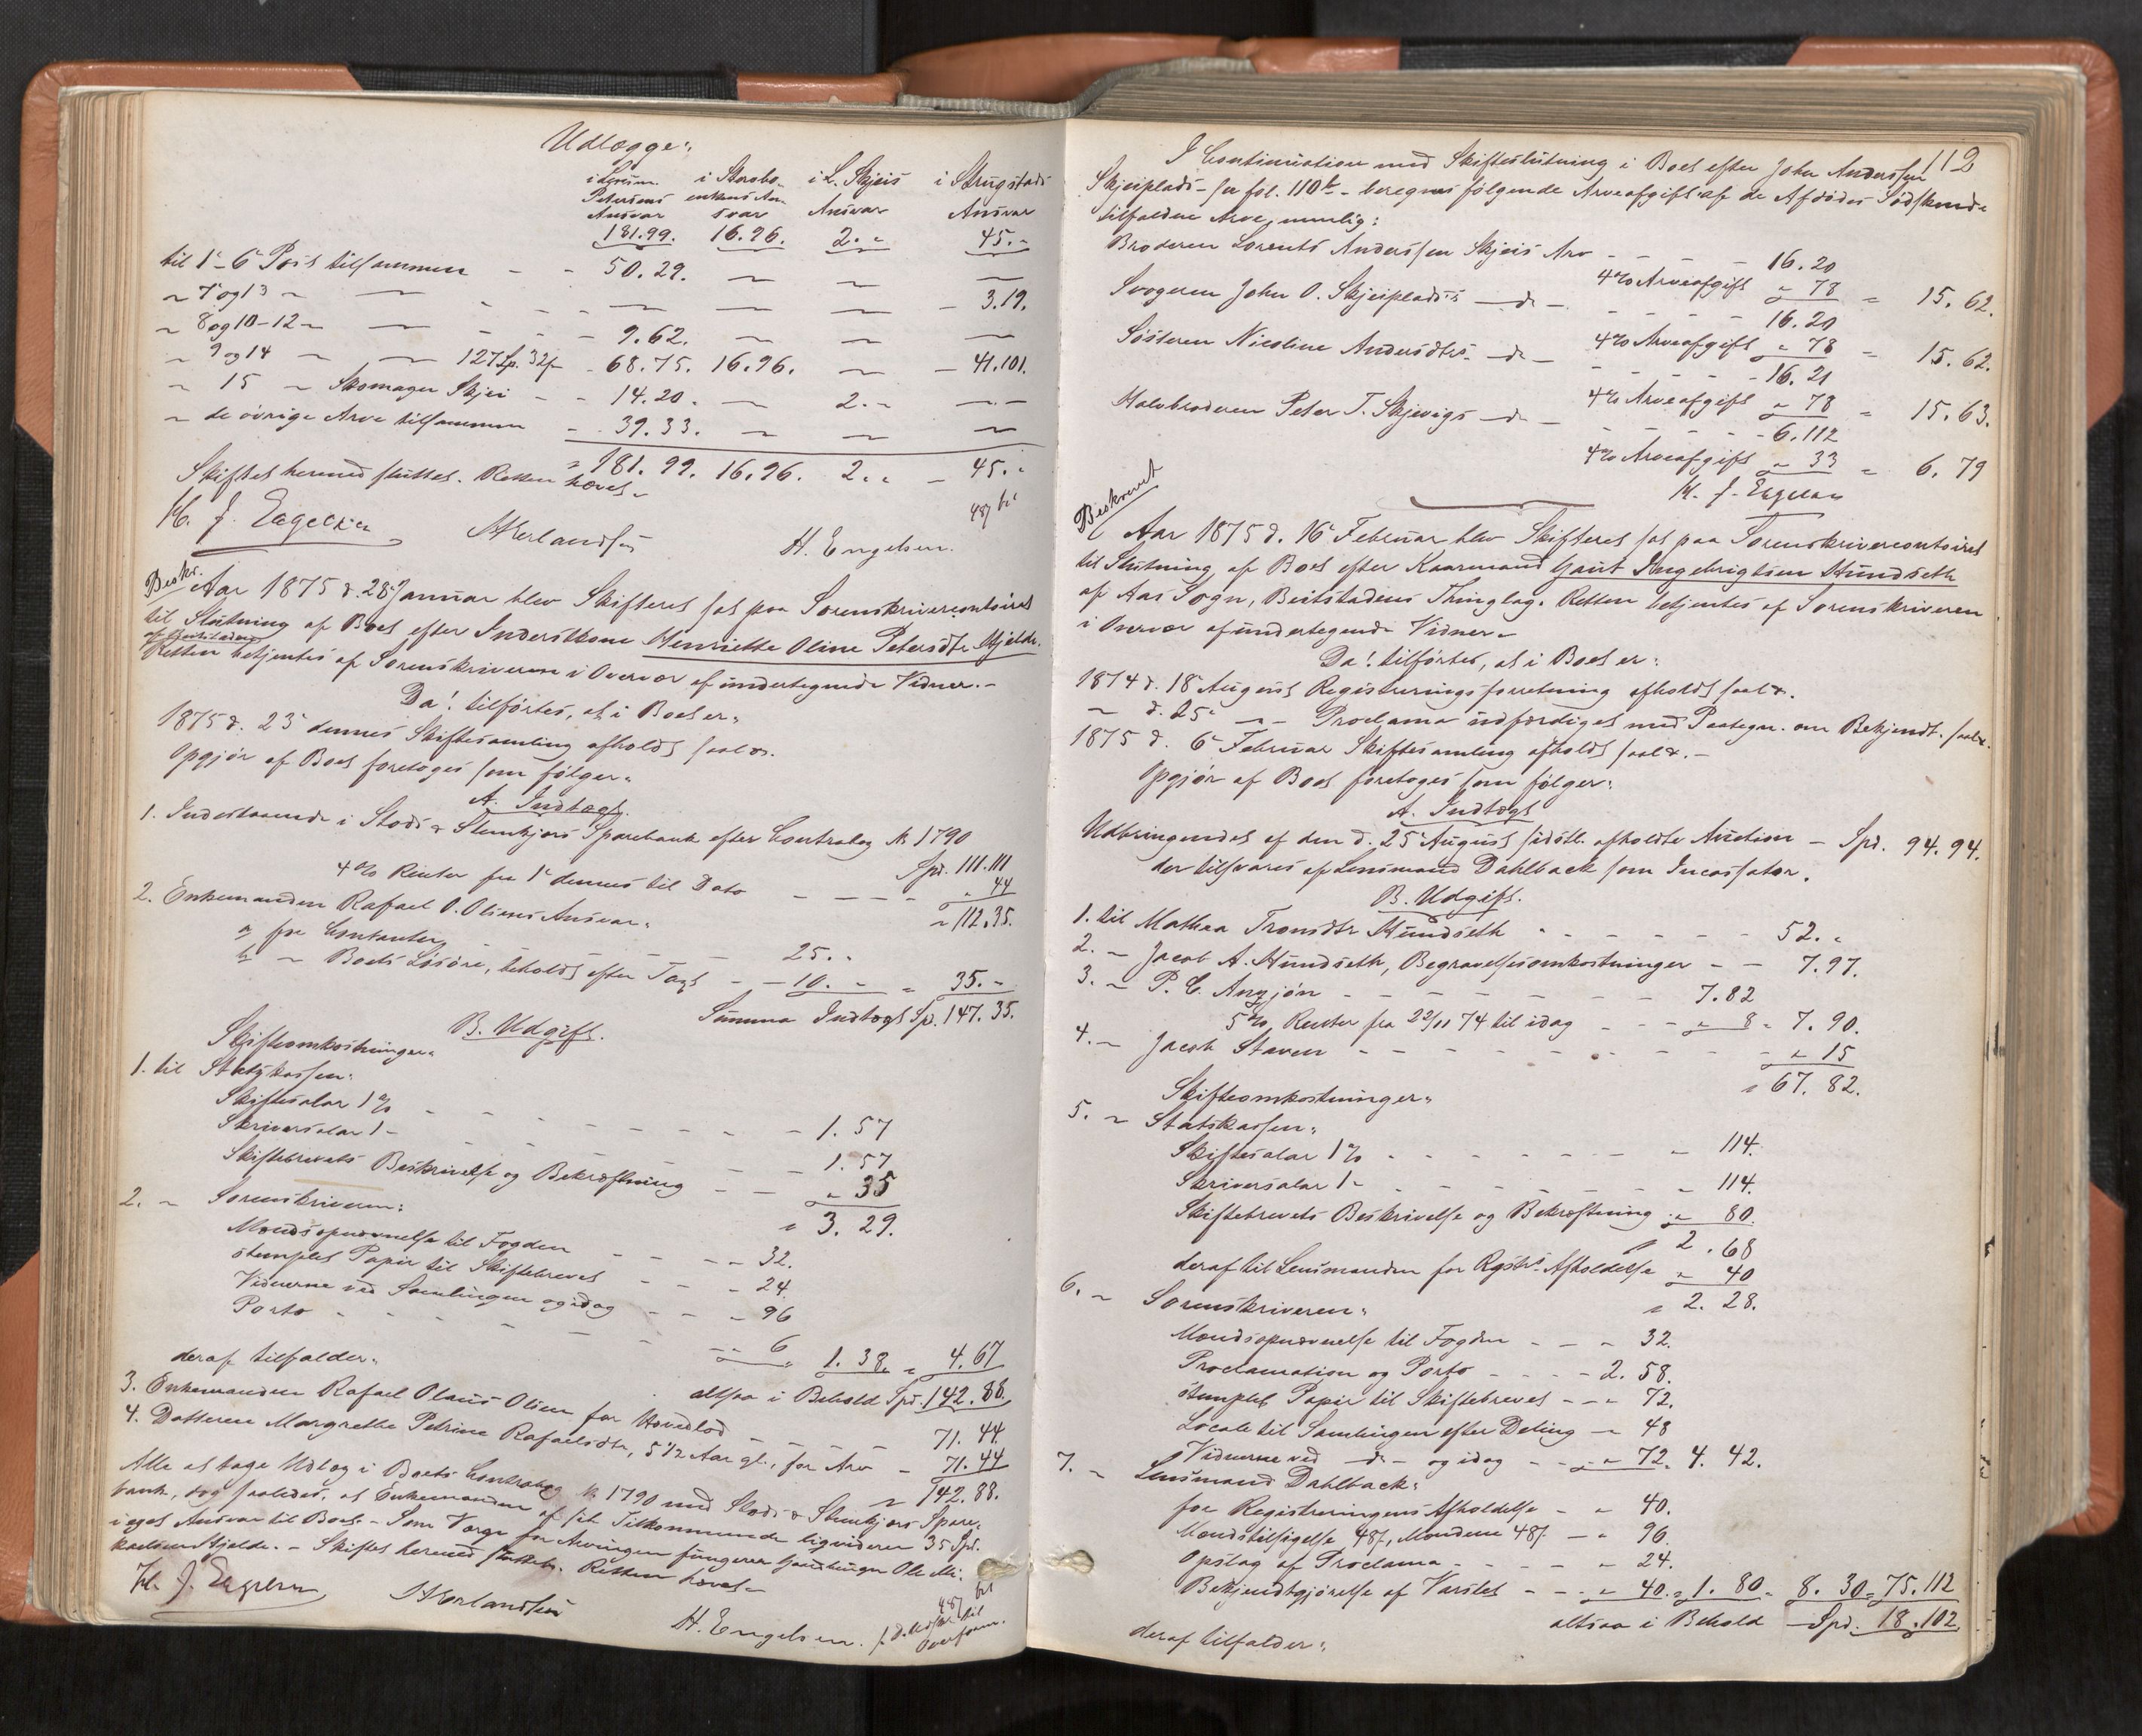 Udlægge:
i Lorents i Skorbo- i L. Skjeis i Strugstads
Petersens enkens An- Ansvar Ansvar
Ansvar svar
181.99. 16.96. 2. " 45. "
til 1-6 Post tilsammen - - 50.29. ~ ~ ~
~ 7 og 13 ~ — - - ~ ~ ~ - 3.19.
~ 8 og 10-12 ~ — - - 9.62. ~ ~ ~
~ 9 og 14 ~ — 127 Sp. 32 s - 68.75. 16.96. ~ - 41.101.
~ 15 ~ Skomager Skjei - - 14.20. ~ 2. " ~
~ de øvrige Arve tilsammen - 39.33. ~ ~ ~
" 181.99. 16.96. 2. " - 45. "
Skiftet hermed sluttet. Retten hævet.
H. J. Engelsen A Erlandsen H. Engelsen.
Beskr.
Aar 1875 d. 28 Januar blev Skifteret sat paa Sorenskrivercontoiret
til Slutning af Boet efter Inderstkone Henriette Oline Petersdtr Hjelde.
Retten betjentes af Sorenskriveren i Overvær af undertegnede Vidner. -
Da! tilførtes, at i Boet er:
1875 d. 23 dennes Skiftesamling afholdt saal.
Opgjør af Boet foretoges som følger:
A. Indtægt.
1. Indestaaende i Stods & Stenkjærs Sparebank efter Contrabog № 1790
Spd. 111.111
4% Renter fra 1 dennes til Dato - - - - " 44
~ 112.35.
2. Enkemanden Rafael O. Olsens Ansvar:
a, for Contanter - - - - 25. "
b, ~ Boets Løsøre, beholdt efter Taxt - - 10. " " 35. "
Summa Indtægt Sp. 147.35.
B. Udgift.
Skifteomkostninger:
1. til Statskassen:
Skiftesalær 1% - - - - - - 1.57
Skriversalær 1 - - - - - - 1.57
Skiftebrevets Beskrivelse og Bekræftning - - " 35
" 3.29.
2. ~ Sorenskriveren:
Mændsopnævnelse til Fogden - - - 32.
stemplet Papir til Skiftebrevet - - - 24
Vidnerne ved Samlingen og idag - - - 96
Porto - - - - - - 6 " 1.38. " 4.67
altsaa i Behold Spd. 142.88.
deraf tilfalder:
3. Enkemanden Rafael Olaus Olsen for Hovedlod - - 71.44.
4. Datteren Margrethe Petrine Rafaelsdtr, 5 1/2 Aar gl., for Arv - 71.44
~ 142.88.
Alle at tage Udlæg i Boets Contrabog № 1790 med Stods & Stenkjærs Spare-
bank, dog saaledes, at Enkemanden af sit Tilkommende liqviderer 35 Spd.
i eget Ansvar til Boet. - Som Værge for Arvingen fungerer Gaardbruger Ole Mi-
kaelsen Hjelde. - Skiftet hermed sluttet. Retten hævet.
H. J. Engelsen A Erlandsen H. Engelsen.
112
I Continuation med Skifteslutning i Boet efter John Anderssen
Skjeiplads - se fol. 110b - beregnes følgende Arveafgift af de Afdødes Sødskende
tilfaldne Arve, nemlig:
Broderen Lorents Anderssen Skjeis Arv - - - - 16.20
4% Arveafgift " 78 = 15.62.
Svogeren John O. Skjeiplads's - do - - - - - 16.20
4% Arveafgift " 78 = 15.62.
Søsteren Nicoline Andersdtrs - do - - - - - 16.21
4% Arveafgift " 78 = 15.63.
Halvbroderen Peter T. Skjevigs - do - - - - - 6.112
4% Arveafgift " 33 = 6.79
H. J. Engelsen
Beskrevet
Aar 1875 d. 16 Februar blev Skifteret sat paa Sorenskrivercontoiret
til Slutning af Boet efter Kaarmand Gaut Ingebrigtsen Hundseth
af Aas Sogn, Beitstadens Thinglag. Retten betjentes af Sorenskriveren
i Overvær af undertegnede Vidner.
Da! tilførtes, at i Boet er:
1874 d. 18 August Registreringsforretning afholdt saal.
~ d. 25 ~ - Proclama udfærdiget med Paategn. om Bekjendt. saal.
1875 d. 6 Februar Skiftesamling afholdt saal. -
Opgjør af Boet foretoges som følger:
A. Indtægt
Udbringendet af den d. 25 August sidstl. afholdte Auction - Spd. 94.94.
der tilsvares af Lensmand Dahlback som Incassator.
B. Udgift.
1. til Mathea Tronsdtr Hundseth - - - - - 52. "
2. ~ Jacob A. Hundseth, Begravelsesomkostninger - - 7.97.
3. ~ P. C. Angjøn - - - - - - 7.82
5% Renter fra 22/11 74 til idag - - - " 8 = 7.90.
4. ~ Jacob Staven - - - - - - - - " 15
" 67.82.
Skifteomkostninger:
5. ~ Statskassen:
Skiftesalær 1% - - - - - - " 114.
Skriversalær 1 - - - - - - " 114.
Skiftebrevets Beskrivelse og Bekræftning - " 80.
" 2.68
deraf til Lensmanden for Rgstrs Afholdelse " 40
" 2.28.
6. ~ Sorenskriveren:
Mændsopnævnelse til Fogden - - " 32.
Proclamation og Porto - - - - 2.58.
stemplet Papir til Skiftebrevet - - " 72.
Locale til Samlingen efter Deling - " 48
Vidnerne ved - do - og idag - - " 72. 4.42.
7. ~ Lensmand Dahlback:
for Registreringens Afholdelse - " 40.
Mændstilsigelse 48 s, Mændene 48 s - " 96.
Opslag af Proclama - - - - " 24.
Bekjendtgjørelse af Varslet - - " 40. = 1.80. = 8.30 = 75.112
altsaa i Behold - Spd. 18.102.
deraf tilfalder: